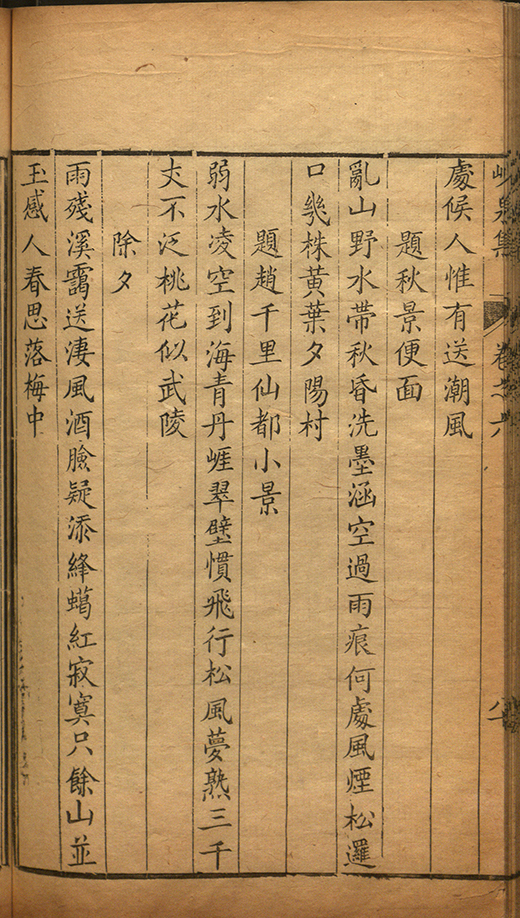 峴泉集 卷之六 八
處候人惟有送潮風
題秋景便面
亂山野水帶秋昏洗墨涵空過雨痕何處風煙松邏
口幾株黃葉夕陽村
題趙千里仙都小景
弱水凌空到海青丹崕翠壁慣飛行松風夢熟三千
丈不泛桃花似武陵
除夕
雨殘溪靄送淒風酒臉疑添絳蠟紅寂寞只餘山並
玉感人春思落梅中